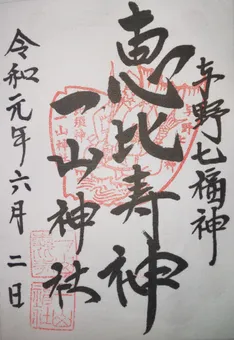 与野七福神
恵比寿神
一山神社
令和元年六月二日